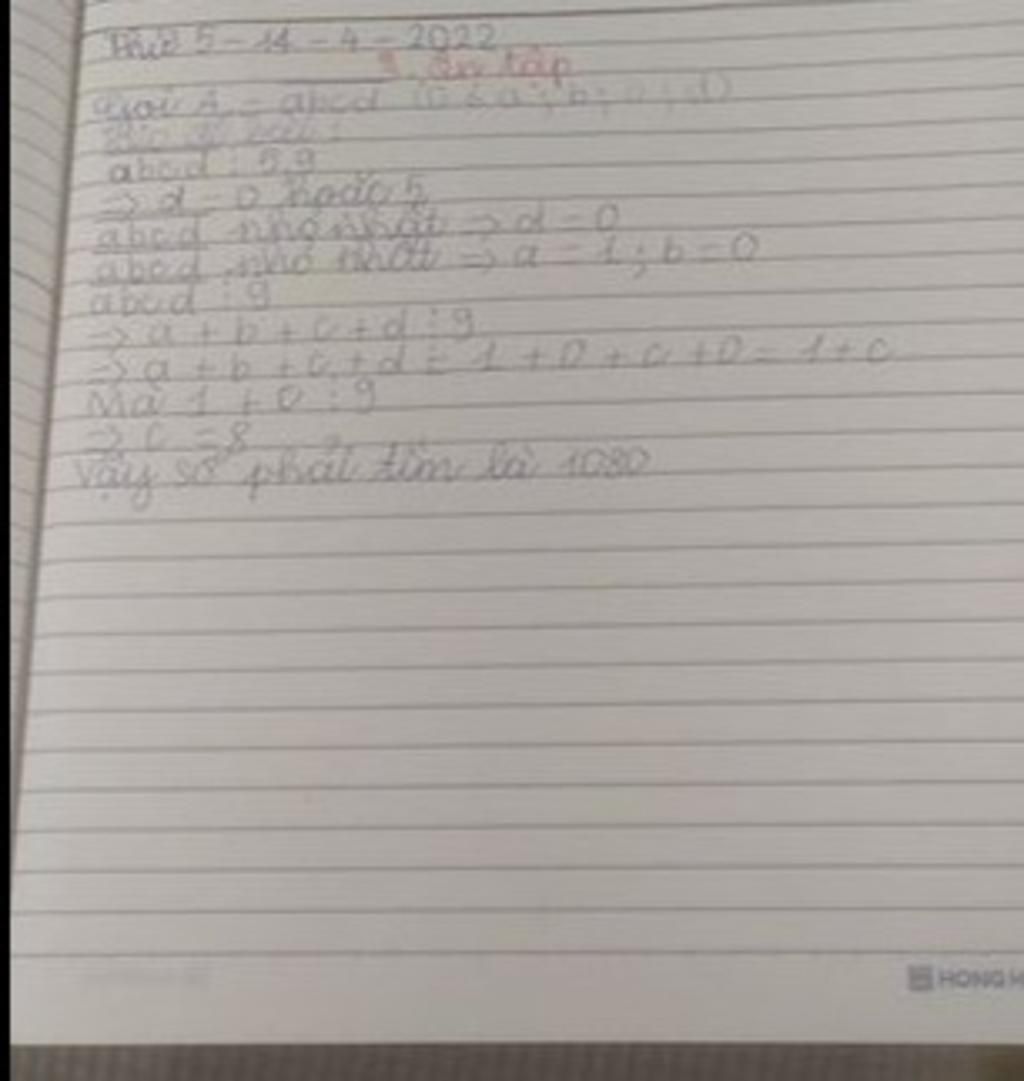 Thứ 5 - 14 - 4 - 2022
Ôn tập
Gọi A = abcd (0 ≤ a; b; c; d)
abcd ⋮ 5,9
=> d = 0 hoặc 5
abcd nhỏ nhất => d = 0
abcd nhỏ nhất => a = 1; b = 0
abcd ⋮ 9
=> a + b + c + d ⋮ 9
=> a + b + c + d = 1 + 0 + c + 0 = 1 + c
Mà 1 + 0 ⋮ 9
=> c = 8
Vậy số phải tìm là 1080
HONG H